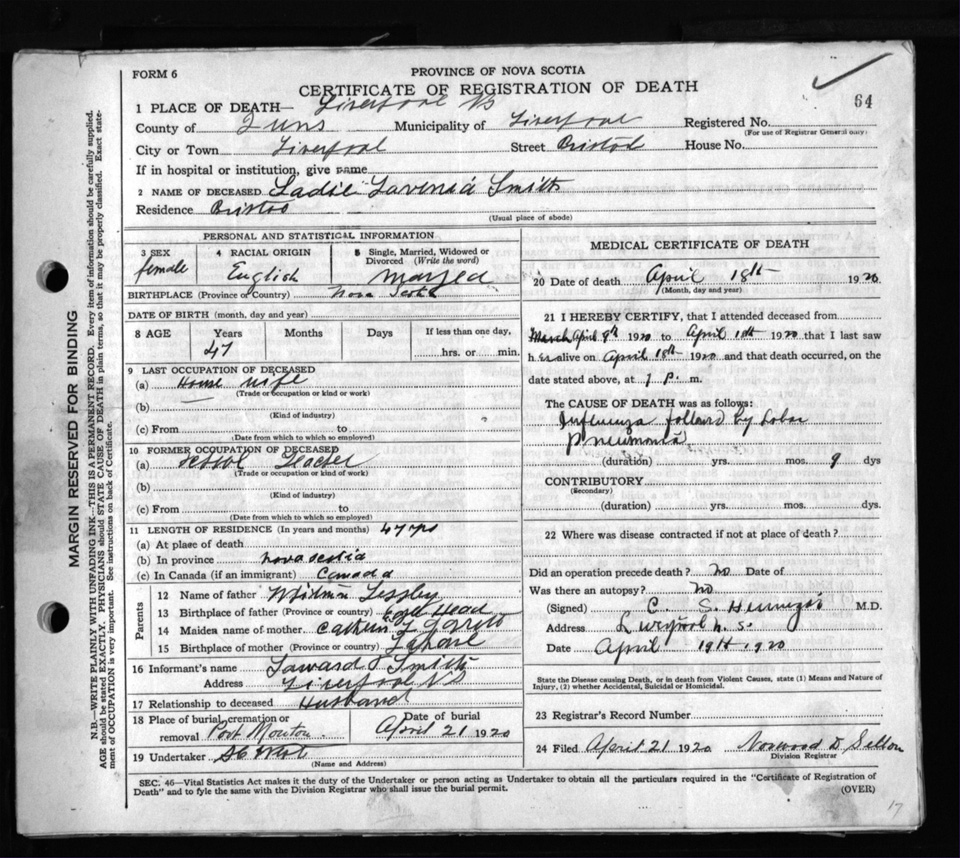 FORM 6
PROVINCE OF NOVA SCOTIA
64
CERTIFICATE OF REGISTRATION OF DEATH
1 PLACE OF DEATH— Liverpool NS
County of Municipality of Liverpool Registered No.
(For use of Registrar General only)
City or Town Liverpool Street Bristol House No.
If in hospital or institution, give name
2 NAME OF DECEASED Sadie Lavenia Smith
Residence Bristol
(Usual place of abode)
PERSONAL AND STATISTICAL INFORMATION
3 SEX female
4 RACIAL ORIGIN English
5 Single, Married, Widowed or Divorced (Write the word) Married
BIRTHPLACE (Province or Country) Nova Scotia
DATE OF BIRTH (month, day and year)
8 AGE Years Months Days If less than one day,
47 hrs. or min.
9 LAST OCCUPATION OF DECEASED
(a) House wife
(Trade or occupation or kind or work)
(b)
(Kind of industry)
(c) From to
(Date from which to which so employed)
10 FORMER OCUPATION OF DECEASED
(a) Teacher
(Trade or occupation or kind of work)
(b)
(Kind of industry)
(c) From to
(Date from which to which so employed)
11 LENGTH OF RESIDENCE (In years and months) 47 yrs
(a) At place of death
(b) In province nova scotia
(c) In Canada (if an immigrant) Canada
Parents
12 Name of father
13 Birthplace of father (Province or country) Head
14 Maiden name of mother L
15 Birthplace of mother (Province or country) Lahave
16 Informant's name Smith
Address Liverpool NS
17 Relationship to deceased Husband
18 Place of burial, cremation or removal Port Mouton Date of burial April 21 1920
19 Undertaker
(Name and Address)
MEDICAL CERTIFICATE OF DEATH
20 Date of death April 18th 1920
(Month, day and year)
21 I HEREBY CERTIFY, that I attended deceased from
March April 9th 1920 to April 18th 1920 that I last saw
her alive on April 18th 1920 and that death occurred, on the
date stated above, at 1 p. m.
The CAUSE OF DEATH was as follows:
Influenza followed by Lobar
Pneumonia
(duration) yrs. mos. 9 dys
CONTRIBUTORY
(Secondary)
(duration) yrs. mos. dys.
22 Where was disease contracted if not at place of death?
Did an operation precede death? No Date of
Was there an autopsy? No
(Signed) C. S. M.D.
Address Liverpool N. S.
Date April 19th 1920
State the Disease causing Death, or in death from Violent Causes, state (1) Means and Nature of
Injury, (2) whether Accidental, Suicidal or Homicidal.
23 Registrar's Record Number
24 Filed April 21 1920 Norwood D
Division Registrar
SEC. 46—Vital Statistics Act makes it the duty of the Undertaker or person acting as Undertaker to obtain all the particulars required in the "Certificate of Registration of
Death" and to fyle the same with the Division Registrar who shall issue the burial permit.
(OVER)
17
MARGIN RESERVED FOR BINDING
N.B.—WRITE PLAINLY WITH UNFADING INK—THIS IS A PERMANENT RECORD. Every item of information should be carefully supplied.
AGE should be stated EXACTLY. PHYSICIANS should STATE CAUSE OF DEATH in plain terms, so that it may be properly classified. Exact state-
ment of OCCUPATION is very important. See instructions on back of Certificate.